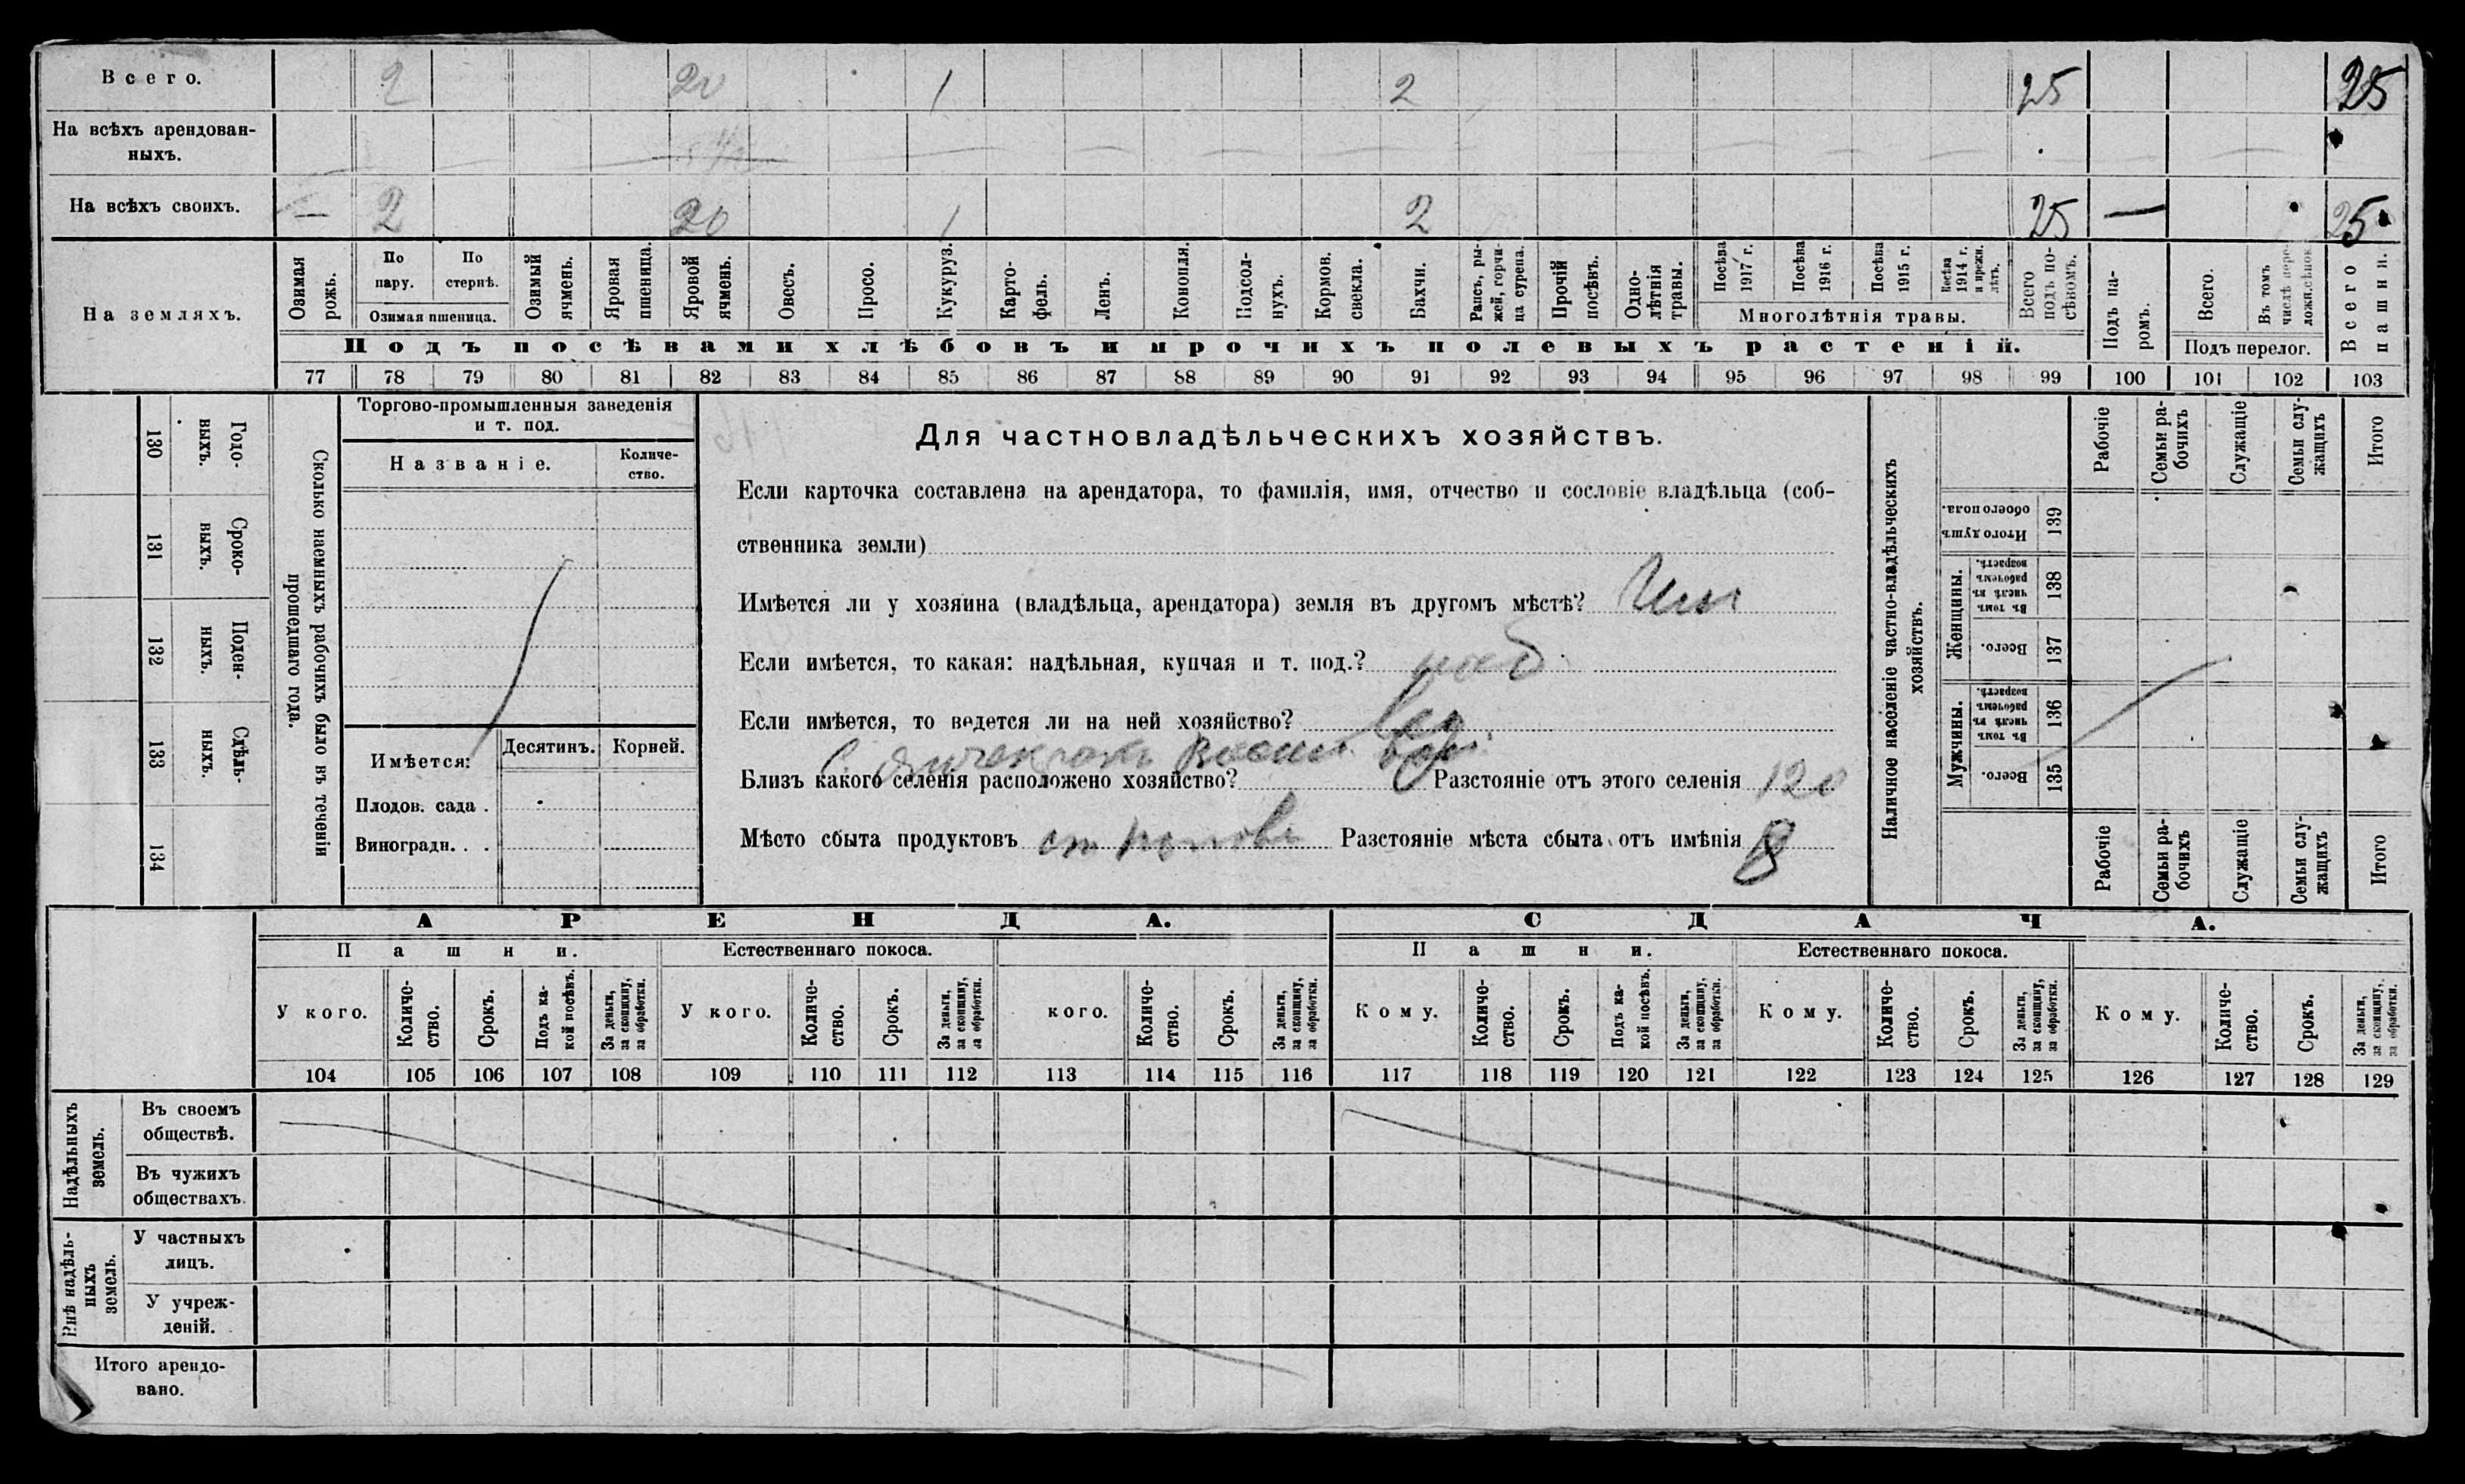 Всего. 2 20 1 2 25 25
На всѣхъ арендован-
ныхъ.
На всѣхъ своихъ. — 2 20 1 2 25 — 25
На земляхъ.
Озимая рожь.
По пару.
По стернѣ.
Озимая пшеница.
Озимый ячмень.
Яровая пшеница.
Яровой ячмень.
Овесъ.
Просо.
Кукуруз.
Карто-
фель.
Ленъ.
Конопля.
Подсол-
нухъ.
Кормов. свекла.
Бахчи.
Рапсъ, ры-
жей, горчи-
ца сурепа.
Прочій посѣвъ.
Одно-
лѣтнія травы.
Посѣва 1917 г.
Посѣва 1916 г.
Посѣва 1915 г.
Посѣва 1914 г. и прежн. лѣтъ.
Многолѣтнія травы.
Всего подъ по-
сѣвомъ.
Подъ па-
ромъ.
Всего.
Въ томъ числѣ пере-
ложн.сѣнок.
Подъ перелог.
Всего пашни.
Подъ посѣвами хлѣбовъ и прочихъ полевыхъ растеній.
77 78 79 80 81 82 83 84 85 86 87 88 89 90 91 92 93 94 95 96 97 98 99 100 101 102 103
130 Годо-
выхъ.
131 Сроко-
выхъ.
132 Поден-
ныхъ.
133 Сдѣль-
ныхъ.
134
Сколько наемныхъ рабочихъ было въ теченіи
прошедшаго года.
Торгово-промышленныя заведенія
и т. под.
Названіе.
Количе-
ство.
Имѣется: Десятинъ. Корней.
Плодов. сада .
Виноградн. . .
Для частновладѣльческихъ хозяйствъ.
Если карточка составлена на арендатора, то фамилія, имя, отчество и сословіе владѣльца (соб-
ственника земли)
Имѣется ли у хозяина (владѣльца, арендатора) земля въ другомъ мѣстѣ?
Если имѣется, то какая: надѣльная, купчая и т. под.?
Если имѣется, то ведется ли на ней хозяйство?
Близъ какого селенія расположено хозяйство? Разстояніе отъ этого селенія 120
Мѣсто сбыта продуктовъ ст Разстояніе мѣста сбыта отъ имѣнія 8
Наличное населеніе частно-владѣльческихъ
хозяйствъ.
Рабочіе
Семьи ра-
бочихъ
Служащіе
Семьи слу-
жащихъ
Итого
Итого душъ обоего пола. 139
Женщины.
Въ томъ числѣ въ рабочемъ возрастѣ. 138
Всего. 137
Мужчины.
Въ томъ числѣ въ рабочемъ возрастѣ. 136
Всего. 135
Рабочіе
Семьи ра-
бочихъ
Служащіе
Семьи слу-
жащихъ
Итого
АРЕНДА. СДАЧА.
Пашни. Естественнаго покоса. Пашни. Естественнаго покоса.
У кого.
Количе-
ство.
Срокъ.
Подъ ка-
кой посѣвъ.
За деньги, за скопщину, за обработки.
У кого.
Количе-
ство.
Срокъ.
За деньги, за скопщину, за обработки.
кого.
Количе-
ство.
Срокъ.
За деньги, за скопщину, за обработки.
Кому.
Количе-
ство.
Срокъ.
Подъ ка-
кой посѣвъ.
За деньги, за скопщину, за обработки.
Кому.
Количе-
ство.
Срокъ.
За деньги, за скопщину, за обработки.
Кому.
Количе-
ство.
Срокъ.
За деньги, за скопщину, за обработки.
104 105 106 107 108 109 110 111 112 113 114 115 116 117 118 119 120 121 122 123 124 125 126 127 128 129
Надѣльныхъ
земель.
Въ своемъ
обществѣ.
Въ чужихъ
обществахъ.
Внѣ надѣль-
ныхъ
земель.
У частныхъ
лицъ.
У учреж-
деній.
Итого арендо-
вано.